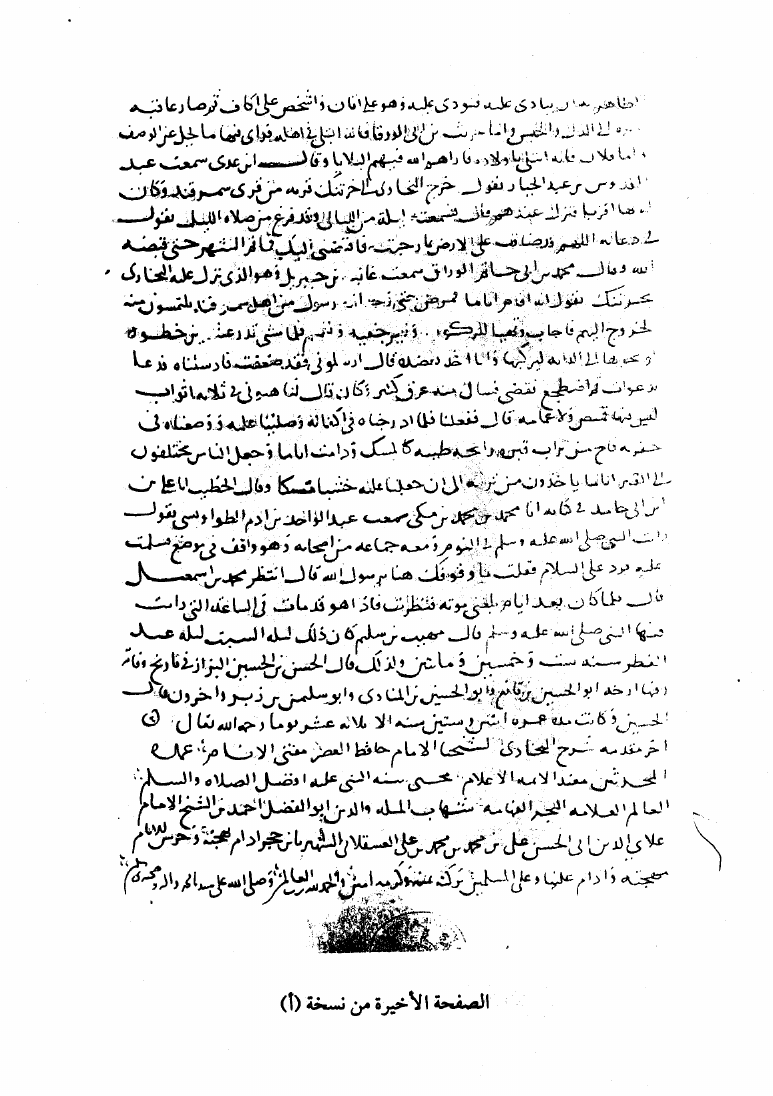 الظاهرية ان ينادى عليه فنودى عليه وهو على اتان واشخص على اكاف ثم صار عاقبة
الى الذل والحبس واما حريث بن ابى الورقا فانه ابتلى فى اهله فراى فيها ما يجل عن الوصف
واما فلان فانه ابتلى باولاده فاراه الله فيهم البلايا وقال ابن عدى سمعت عبد
القدوس بن عبد الجبار يقول خرج البخارى الى خرتنك قرية من قرى سمرقند وكان
له بها اقربا فنزل عندهم قال فسمعته ليلة من الليالى وقد فرغ من صلاة الليل يقول
فى دعائه اللهم قد ضاقت على الارض بما رحبت فاقبضنى اليك فما تم الشهر حتى قبضه
الله وقال محمد بن ابى حاتم الوراق سمعت غالب بن جبريل وهو الذى نزل عليه البخارى
بخرتنك يقول انه اقام اياما فمرض حتى وجه اليه رسول من اهل سمرقند يلتمسون منه
الخروج اليهم فاجاب وتهيا للركوب ولبس خفيه وتعمم فلما مشى قدر عشرين خطوة
او نحوها الى الدابة ليركبها وانا اخذ بعضده قال ارسلونى فقد ضعفت فارسلناه فدعا
بدعوات ثم اضطجع فقضى فسال منه عرق كثير وكان قال لنا كفنونى فى ثلاثة اثواب
ليس فيها قميص ولا عمامة قال ففعلنا فلما ادرجناه فى اكفانه وصلينا عليه ووضعناه فى
حفرته فاح من تراب قبره رايحة طيبة كالمسك ودامت اياما وجعل الناس يختلفون
الى القبر اياما ياخذون من ترابه الى ان جعلنا عليه خشبا مشبكا وقال الخطيب انا على بن
ابى حامد فى كتابه انا محمد بن محمد بن مكى سمعت عبد الواحد بن ادم الطواويسى يقول
رايت النبى صلى الله عليه وسلم فى النوم ومعه جماعة من اصحابه وهو واقف فى موضع فسلمت
عليه فرد على السلام فقلت ما وقوفك هنا يرسول الله قال انتظر محمد بن اسمعيل
قال فلما كان بعد ايام بلغنى موته فنظرت فاذا هو قد مات فى الساعة التى رايت
فيها النبى صلى الله عليه وسلم قال مهيب بن سليم كان ذلك ليلة السبت ليلة عيد
الفطر سنة ست وخمسين ومايتين وكذلك قال الحسن بن الحسين البزاز فى تاريخ وفاته
وفيها ارخه ابو الحسين بن قانع وابو الحسين بن المنادى وابو سليمن بن زبر واخرون قال
الحسين وكانت مدة عمره اثنتين وستين سنة الا ثلاثة عشر يوما رحمه الله تعالى
اخر مقدمة شرح البخارى لشيخنا الامام حافظ العصر مفتى الانام عمدة
المحدثين مفيد الايمة الاعلام محيى سنة النبى عليه افضل الصلاة والسلم
العالم العلامة البحر الفهامة شهاب الملة والدين ابو الفضل احمد بن الشيخ الامام
علاى الدين ابى الحسن على بن محمد بن محمد بن على العسقلانى الشهير بابن حجر ادام بهجته وحرس للانام
مهجته وادام علينا وعلى المسلمين بركته بمنه وكرمه امين والحمد لله رب العالمين وصلى الله على سيدنا محمد واله وصحبه وسلم
الصفحة الأخيرة من نسخة (أ)